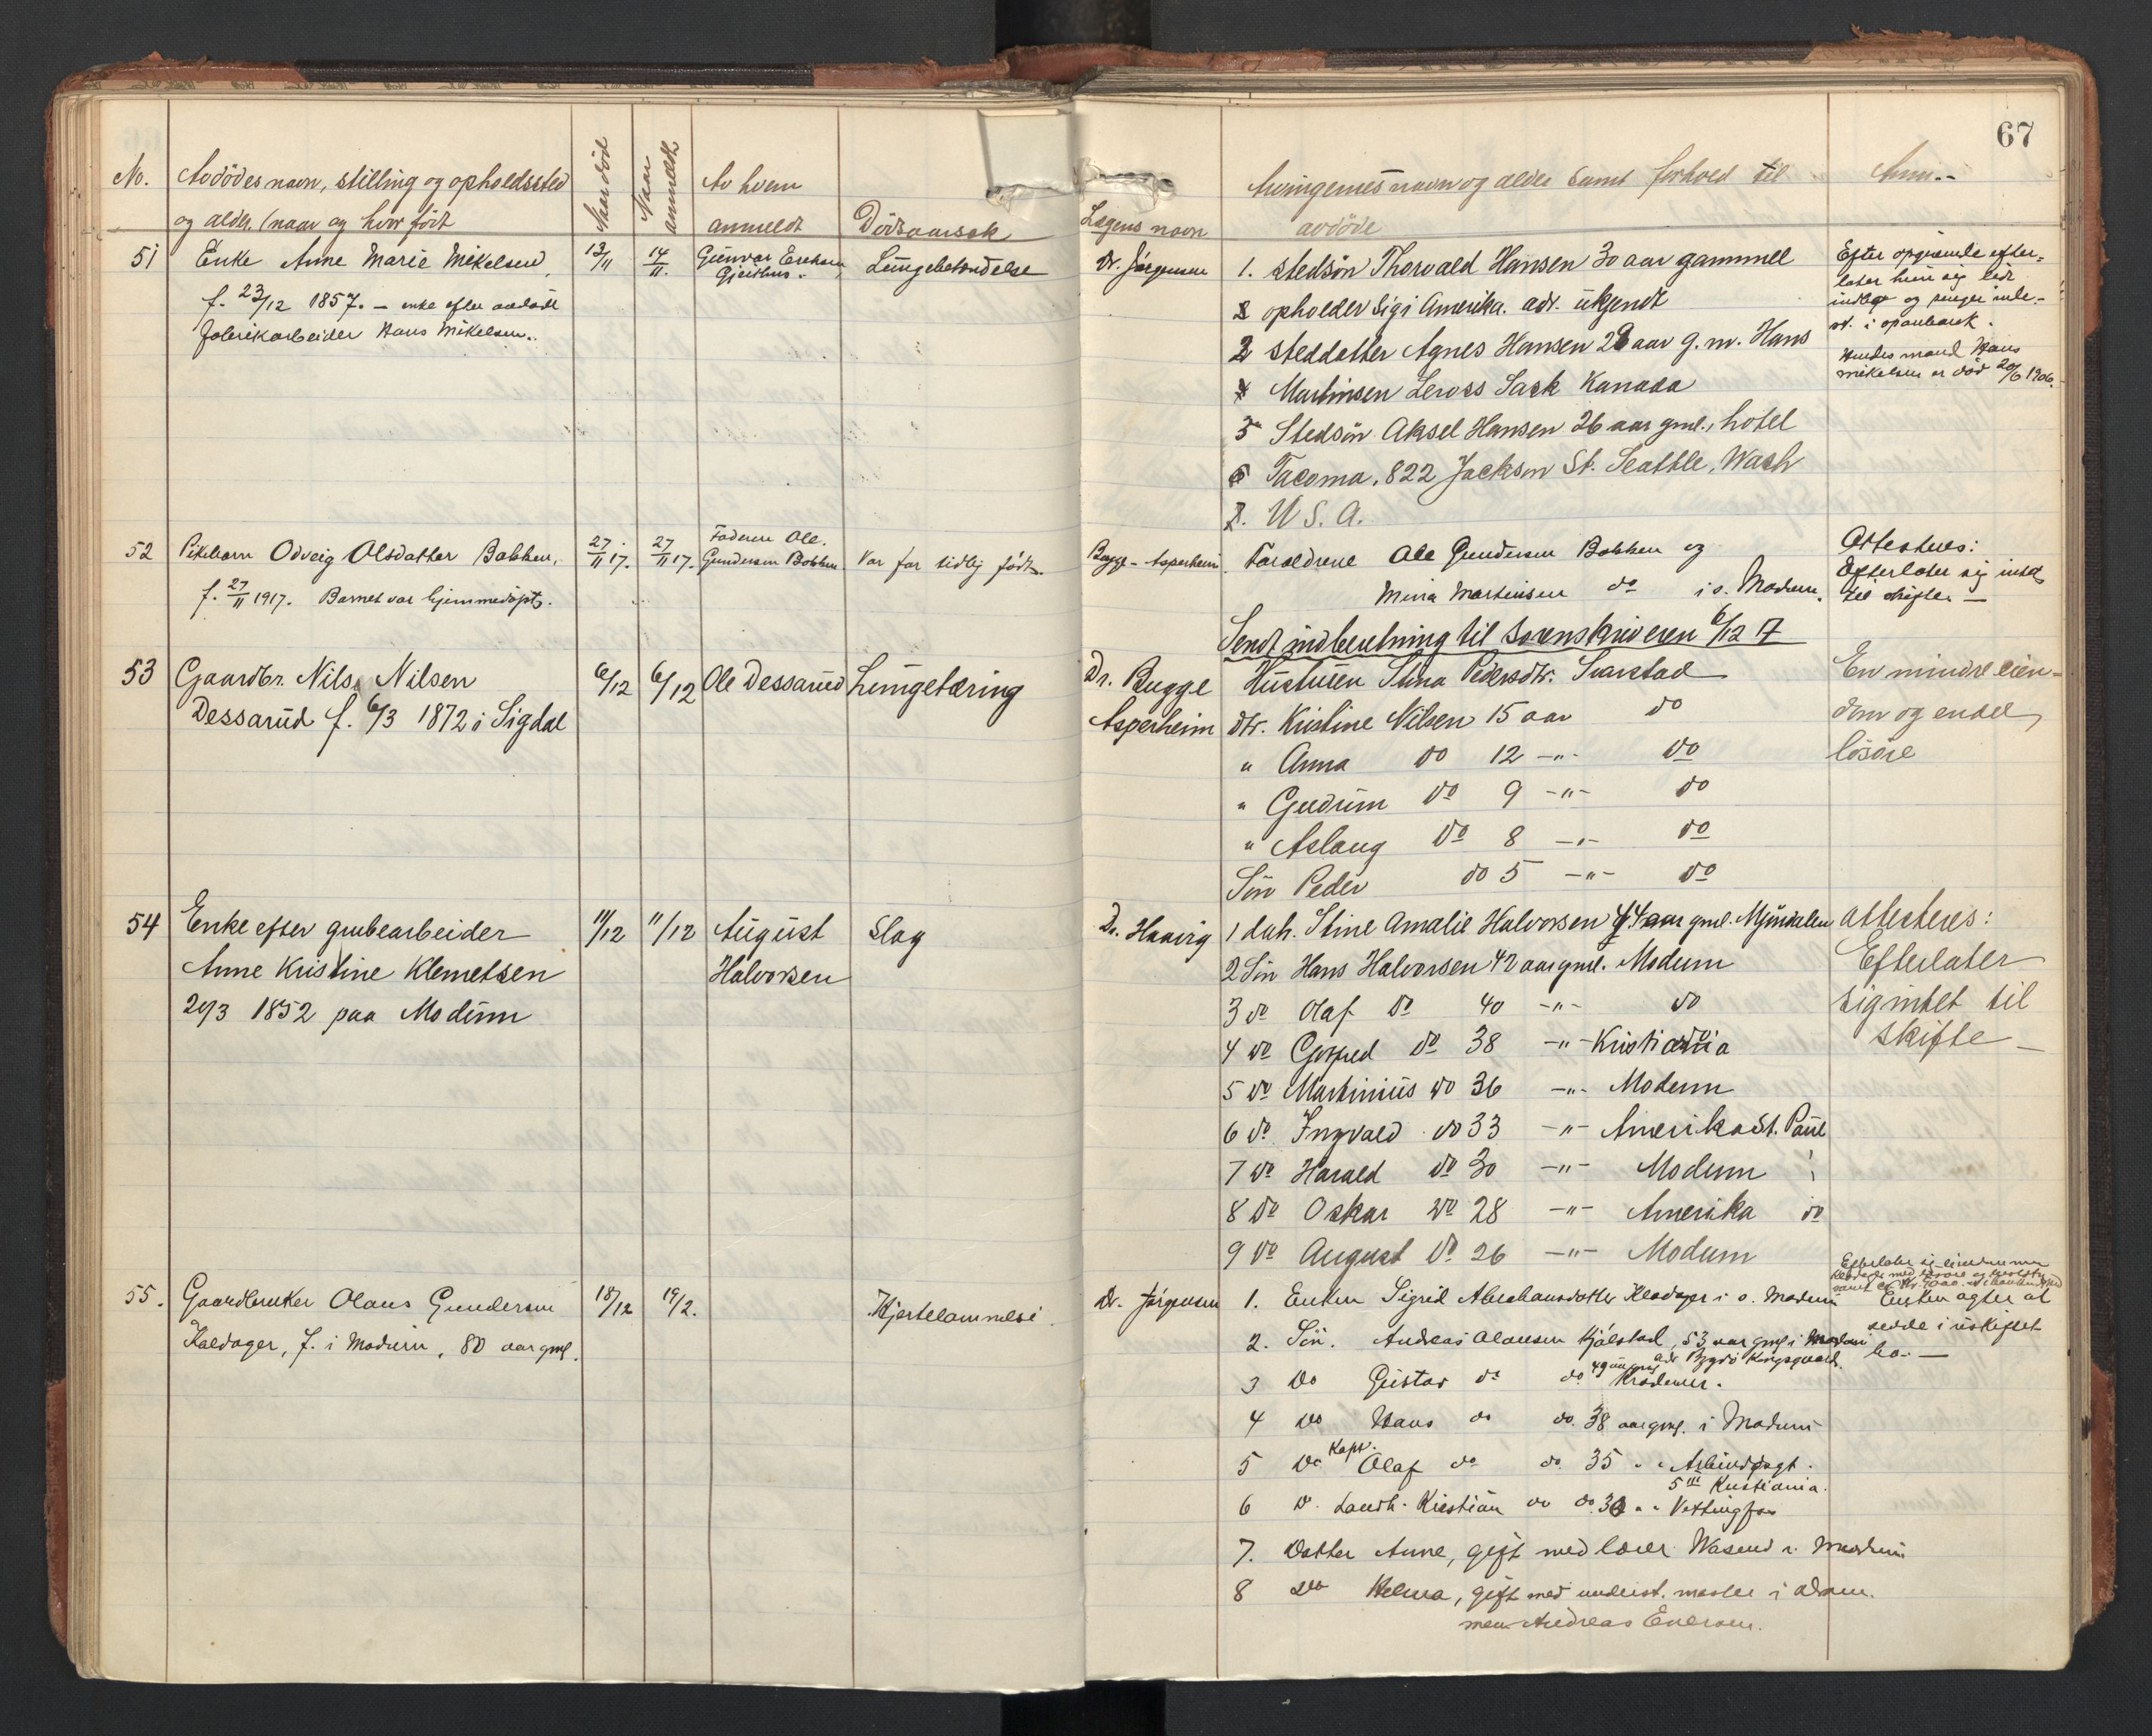 67
No. Avdödes navn, stilling og opholdssted
og alder. (naar og hvor født
Naar död
Naar anmeldt
Av hvem
anmeldt
Dödsaarsak
Lægens navn
Arvingernes navn og alder samt forhold til
avdöde
Anm.
51 Enke Anne Marie Mikelsen,
f. 23/12 1857. – enke efter avdöde
fabrikarbeider Hans Mikelsen.
13/11
14/11.
Gunvor
Gjeithus.
Lungebetændelse
Dr. Jörgensen
1. stedsön Thorvald Hansen 30 aar gammel
opholder sig i Amerika. adr. ukjendt
2 steddatter Agnes Hansen 28 aar g. m. Hans
Martinsen Leross Sask Kanada
3 Stedsön Aksel Hansen 26 aar gml., hotel
Tacoma, 822 Jackson St. Seattle, Wash
U S. A.
Efter opgivende efter-
later hun sig lidt
indbo og penger inde-
st. i sparebank.
Hendes mand Hans
Mikelsen er död 20/6 1906.
52 Pikebarn Odveig Olsdatter Bakken,
f. 27/11 1917. Barnet var hjemmedöpt.
27/11 17.
27/11 17.
Faderen Ole
Gundersen Bakken
Var for tidlig födt.
Bugge-Asperheim
Foreldrene Ole Gundersen Bakken og
Mina Martinsen do i ö. Modum.
Attesteres:
Efterlater sig intet
til skifte –
Sendt indberetning til sorenskriveren 6/12 17
53 Gaardbr. Nils Nilsen
Dessarud f. 6/3 1872 i Sigdal
6/12
6/12
Ole Dessarud
Lungetæring
Dr. Bugge
Asperheim
Hustruen Stina Pedersdtr. Svarstad
dtr. Kristine Nilsen 15 aar do
" Anna do 12 –"– do
" Gudrun do 9 –"– do
" Aslaug do 8 –"– do
Sön Peder do 5 –"– do
En mindre eien-
dom og endel
lösöre
54 Enke efter grubearbeider
Anne Kristine Klemetsen
29/3 1852 paa Modum
11/12
11/12
August
Halvorsen
Slag
Dr. Haavig
1 dah. Stine Amalie Halvorsen 44 aar gml. Mjöndalen
2 Sön Hans Halvorsen 42 aar gml. Modum
3 do Olaf do 40 –"– do
4 do do 38 –"– Kristiania
5 do Martinius do 36 –"– Modum
6 do Ingvald do 33 –"– Amerika St. Paul
7 do Harald do 30 –"– Modum
8 do Oskar do 28 –"– Amerika do
9 do August do 26 –"– Modum
attesteres:
Efterlater
sig intet til
skifte –
55. Gaardbruker Olaus Gundersen
Kaldager, f. i Modum, 80 aar gml.
18/12
19/2.
Hjertelammelse
Dr. Jörgensen
1. Enken Sigrid Abrahamsdatter i ö. Modum
2. Sön. Andreas Olausen Hjölstad, 53 aar gml i Modum
adr Bygdö Kongsgaard.
3 do Gustav do do 49 aar gml
4 do Hans do do. 38 aar gml. i Modum
5 do Kapt. Olaf do do. 35 " "
5 III Kristiania.
6 d. Landh. Kristian do do 30 " "
7. Datter Anne, gift med lærer i Modum
8 do Helma, gift med underst. mester i Dram-
men Andreas Evensen.
Enken agter at
sidde i uskiftet
bo. –